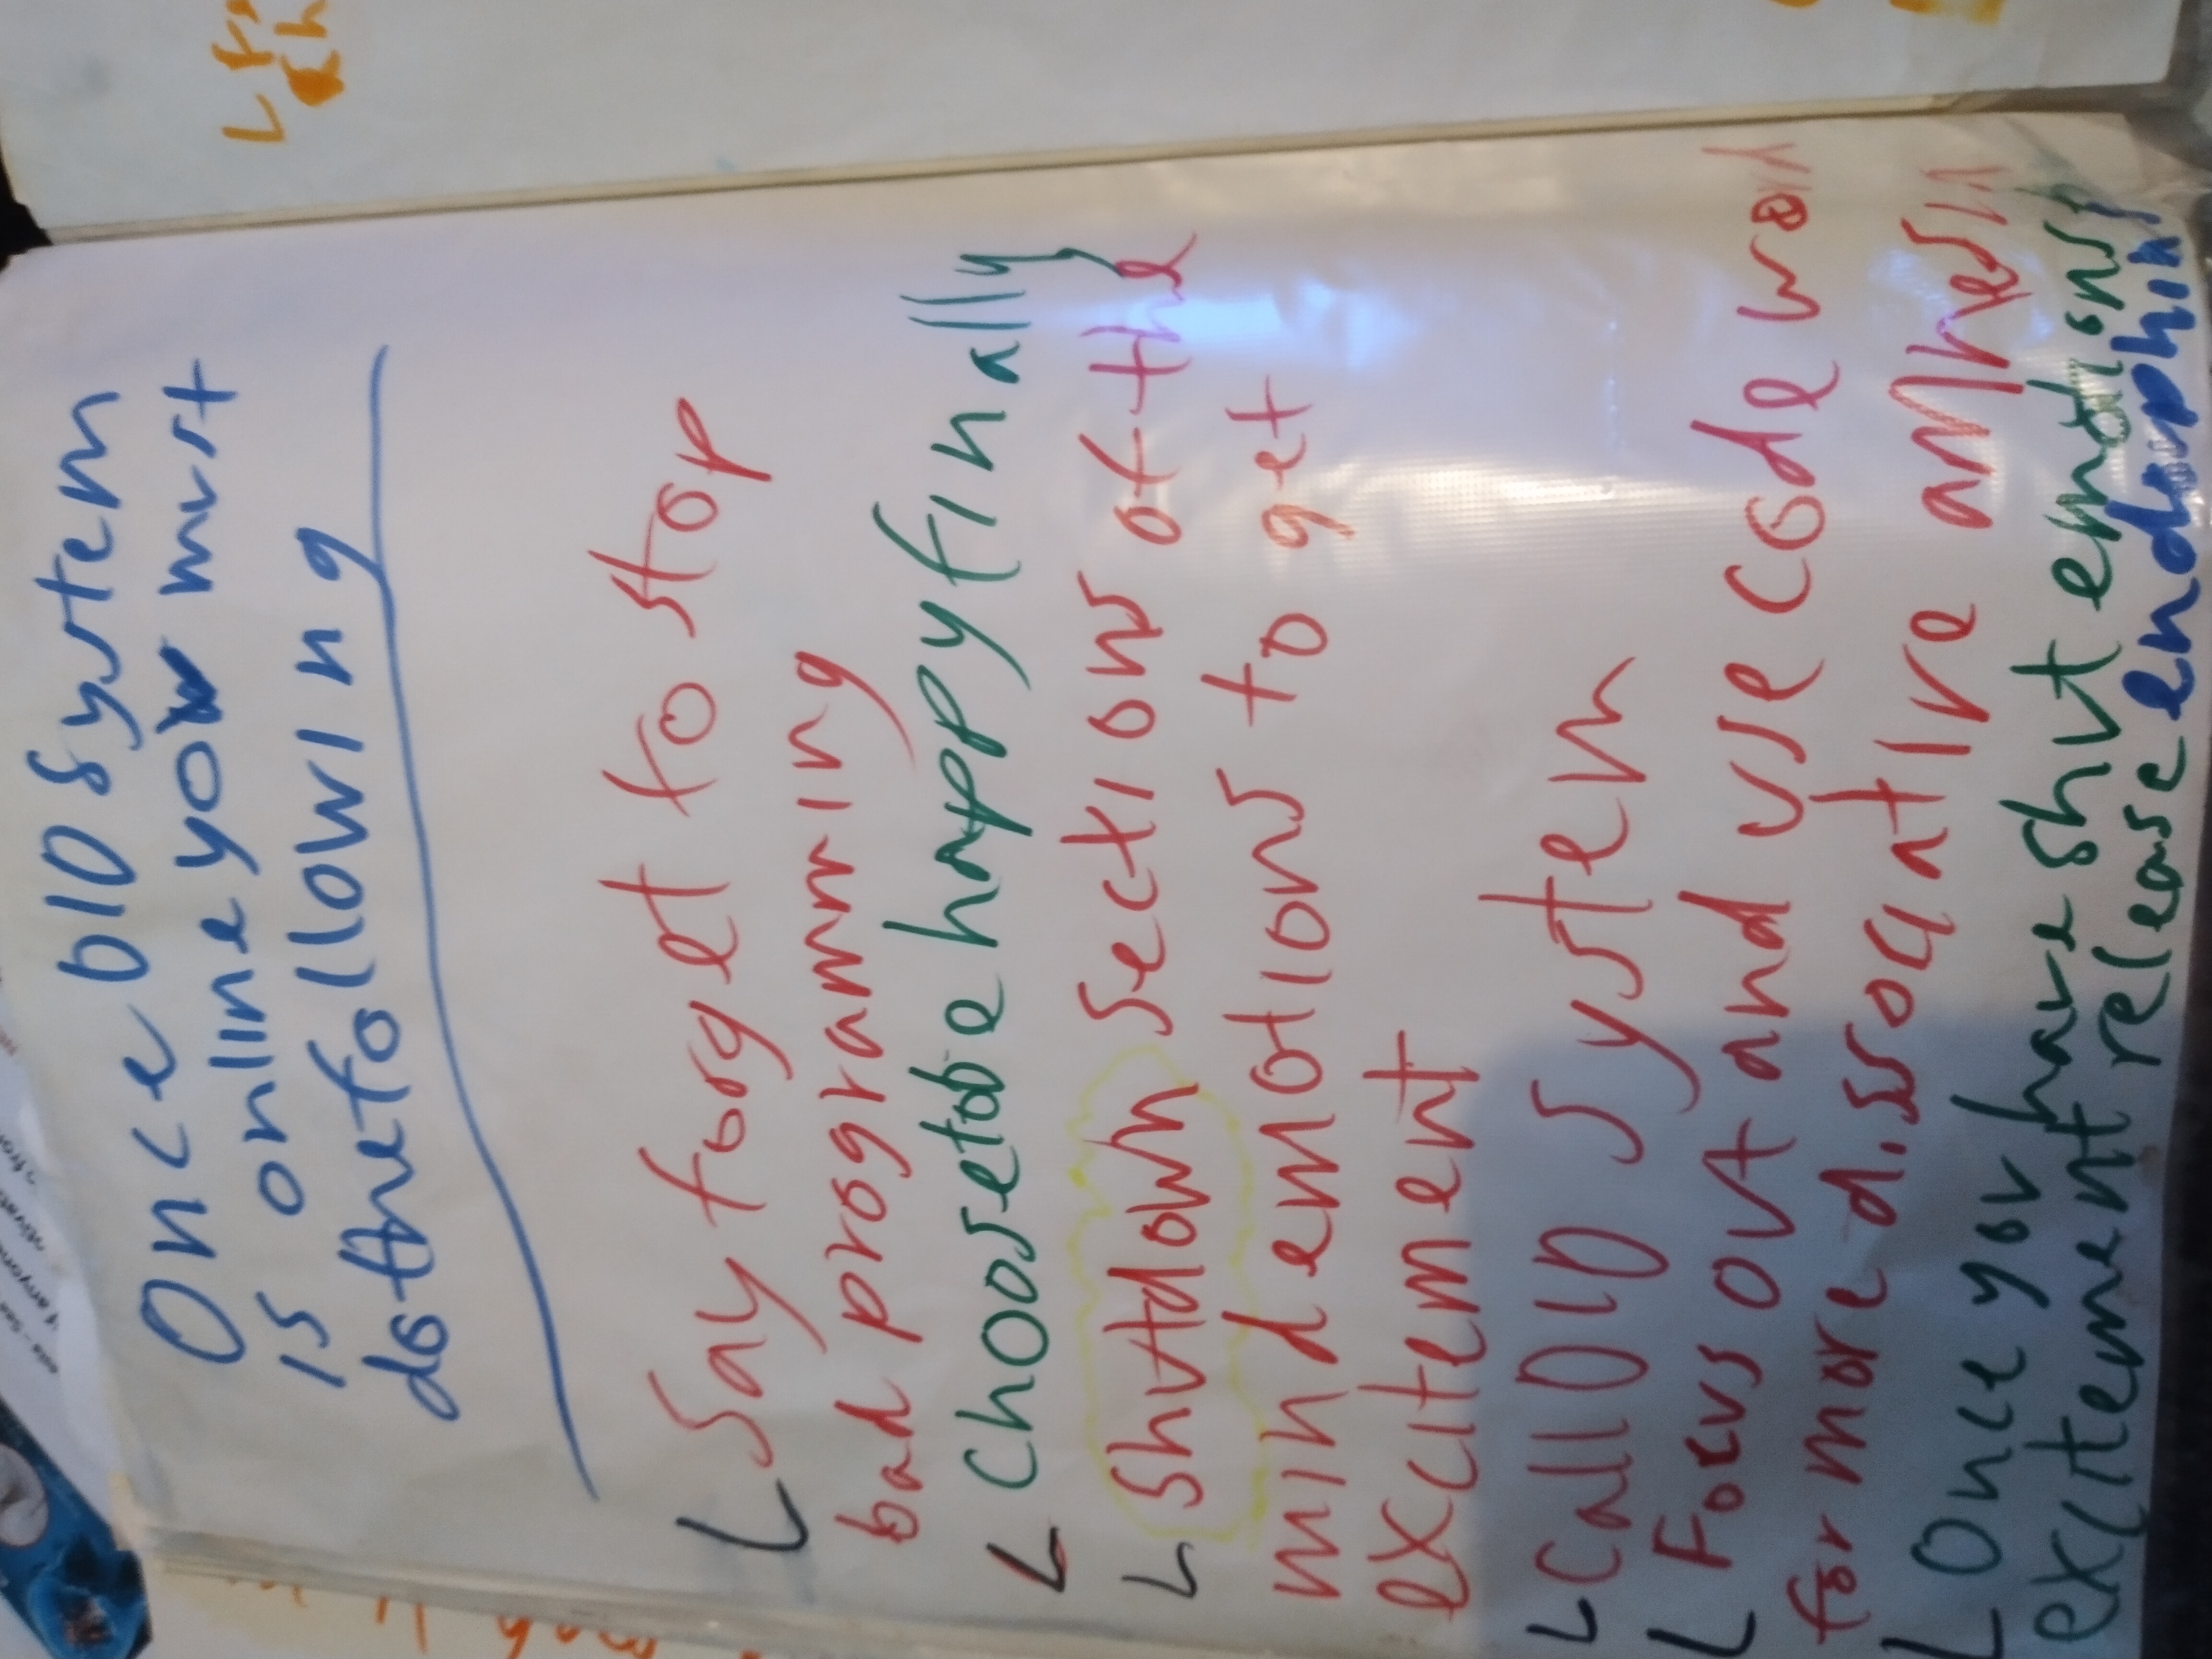 Once bIO system
is online you must
do the following
Say forget to stop
bad programming
choose to be happy finally
Shutdown sections of the
mind emotions to get
excitement
Call OID system
Focus out and use code wor
for more dissociative
Once you have shut emotions
excitement release endorphins